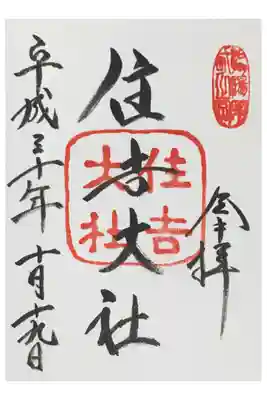 拝
住吉大社
住吉
大社
平成三十年 十月十九日